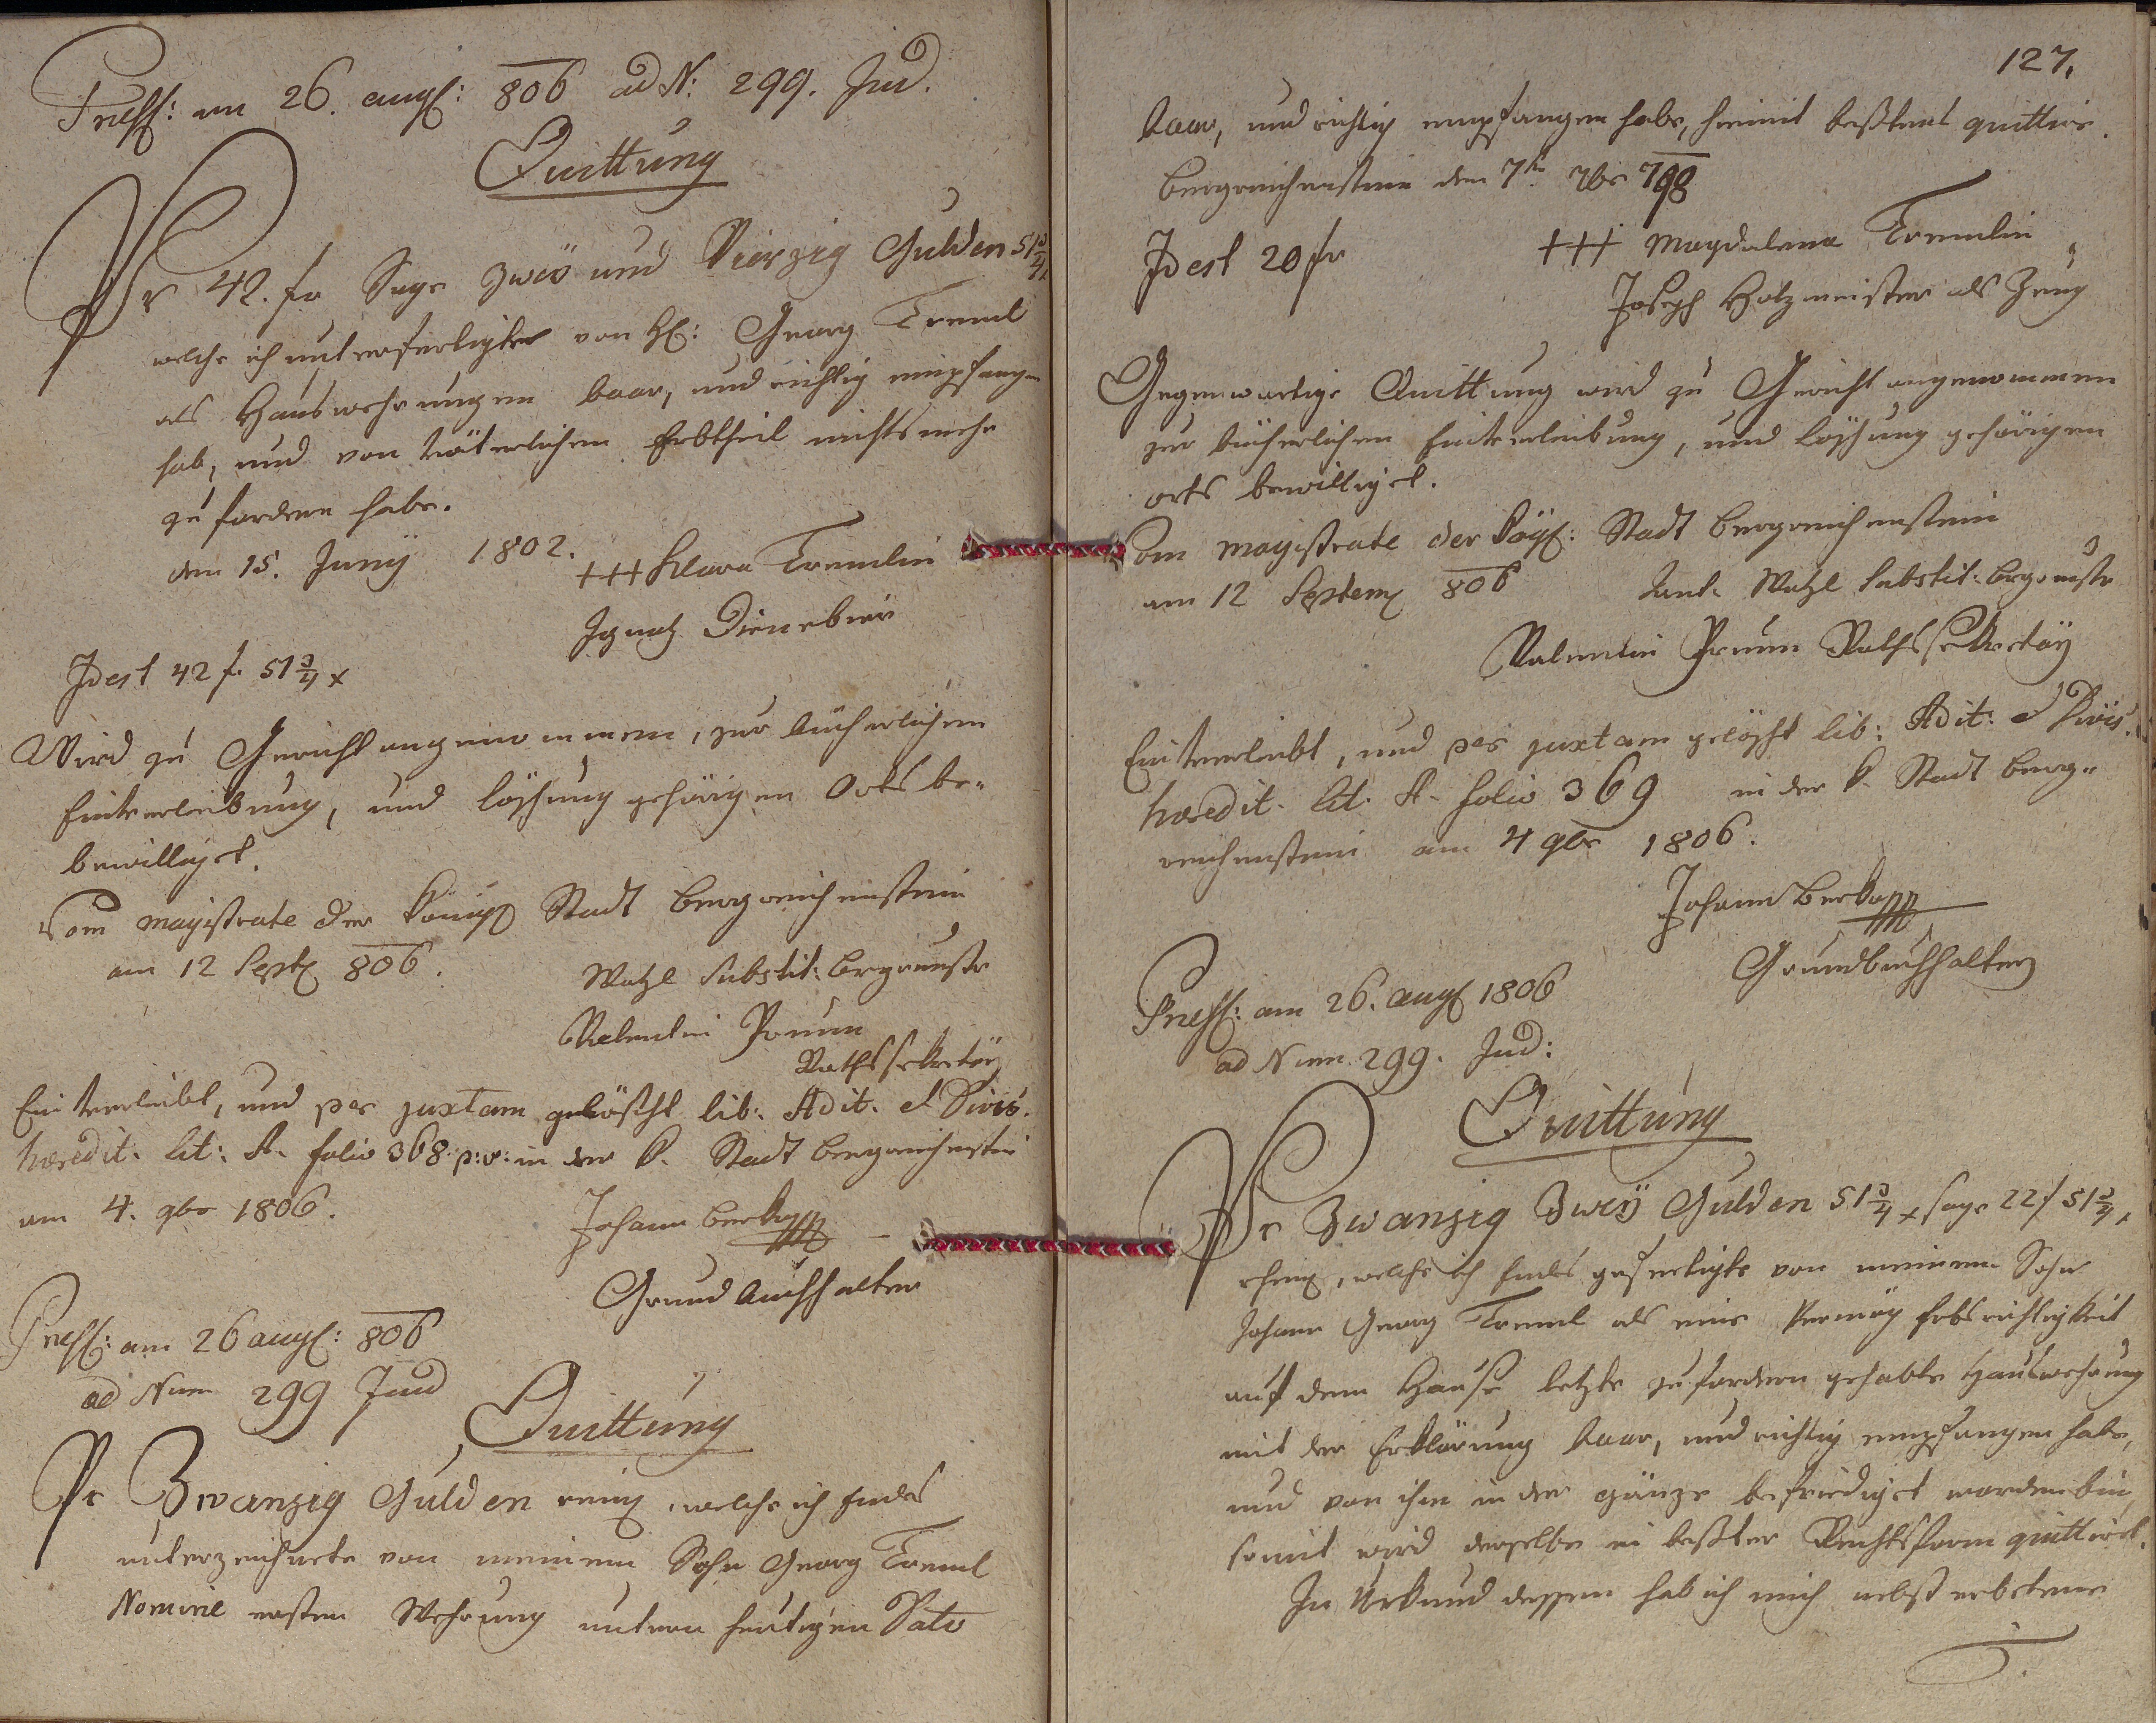 Press: am 26. aug: 806 ad N: 299. Jud.
Quittung
Pr 42. fr Sage zweÿ und Vierzig Gulden 51¾
welche ich unterfertigter von H: Georg Treml
als Hauswehrungen baar, und richtig empfangen
hab, und von väterlichen Erbtheil nichts mehr
zu fordern habe.
den 15. Junÿ 1802.
+++ Klara Tremlin
Ignatz Dienebier
Idest 42 f. 51¾ x
Wird zu Gericht angenommen, zur bücherlichen
Einverleibung, und löschung gehörigen Orts be-
bewilliget.
Vom magistrate der König Stadt Bergreichenstein
am 12 Sept 806.
Watzl Substit: Brgrmstr
Valentin Prum
Rathssekretär
Einverleibt, und per juxtam gelöscht lib: Adit. et Divis.
hæredit. lit: A. folio 368. p:v: in der k. Stadt Bergreichenstein
am 4. 9br 1806.
Johann Berko
Grundbuchhalter
Press: am 26 aug: 806
ad Num 299 Jud
Quittung
Pr Zwanzig Gulden rein, welche ich Endes
unterzeichnete von meinem Sohn Georg Treml
Nomine ersten Wehrung untern heutigen Dato
127.
baar, und richtig empfangen habe, hiemit bestens quittire.
Bergreichenstein den 7t 7br 798
Idest 20 fr
+++ Magdalena Tremlin
Joseph Holzmeister als Zeug
Gegenwartige Quittung wird zu Gericht angenommen
zur bücherlichen Einverleibung, und löschung gehörigen
orts bewilliget.
Vom magistrate der Kög: Stadt Bergreichenstein
am 12 Septem 806
Watzl Substit: Brgrmstr
Valentin Prum Rathssekretär
Einverleibt, und per juxtam gelöscht lib: Adit: et Divis.
hæredit. lit. A. folio 369 in der k. Stadt Berg-
reichenstein am 4 9br 1806.
Johann Berko
Grundbuchhalter
Press: am 26. aug 1806
ad Num. 299. Jud:
Quittung
Pr Zwanzig Zweÿ Gulden 51¾ x sage 22 f 51¾ x
rhein, welche ich Endes gefertigte von meinem Sohn
Johann Georg Treml als eine Vermög Erbsrichtigkeit
auf dem Hause letzte zu fordern gehabte Hauswehrung
mit der Erklärung baar, und richtig empfangen habe,
und von ihm in der gänze befriediget worden bin,
somit wird derselbe in bester Rechtsform quittirt.
In Urkund dessen hab ich mich nebst erbetenen